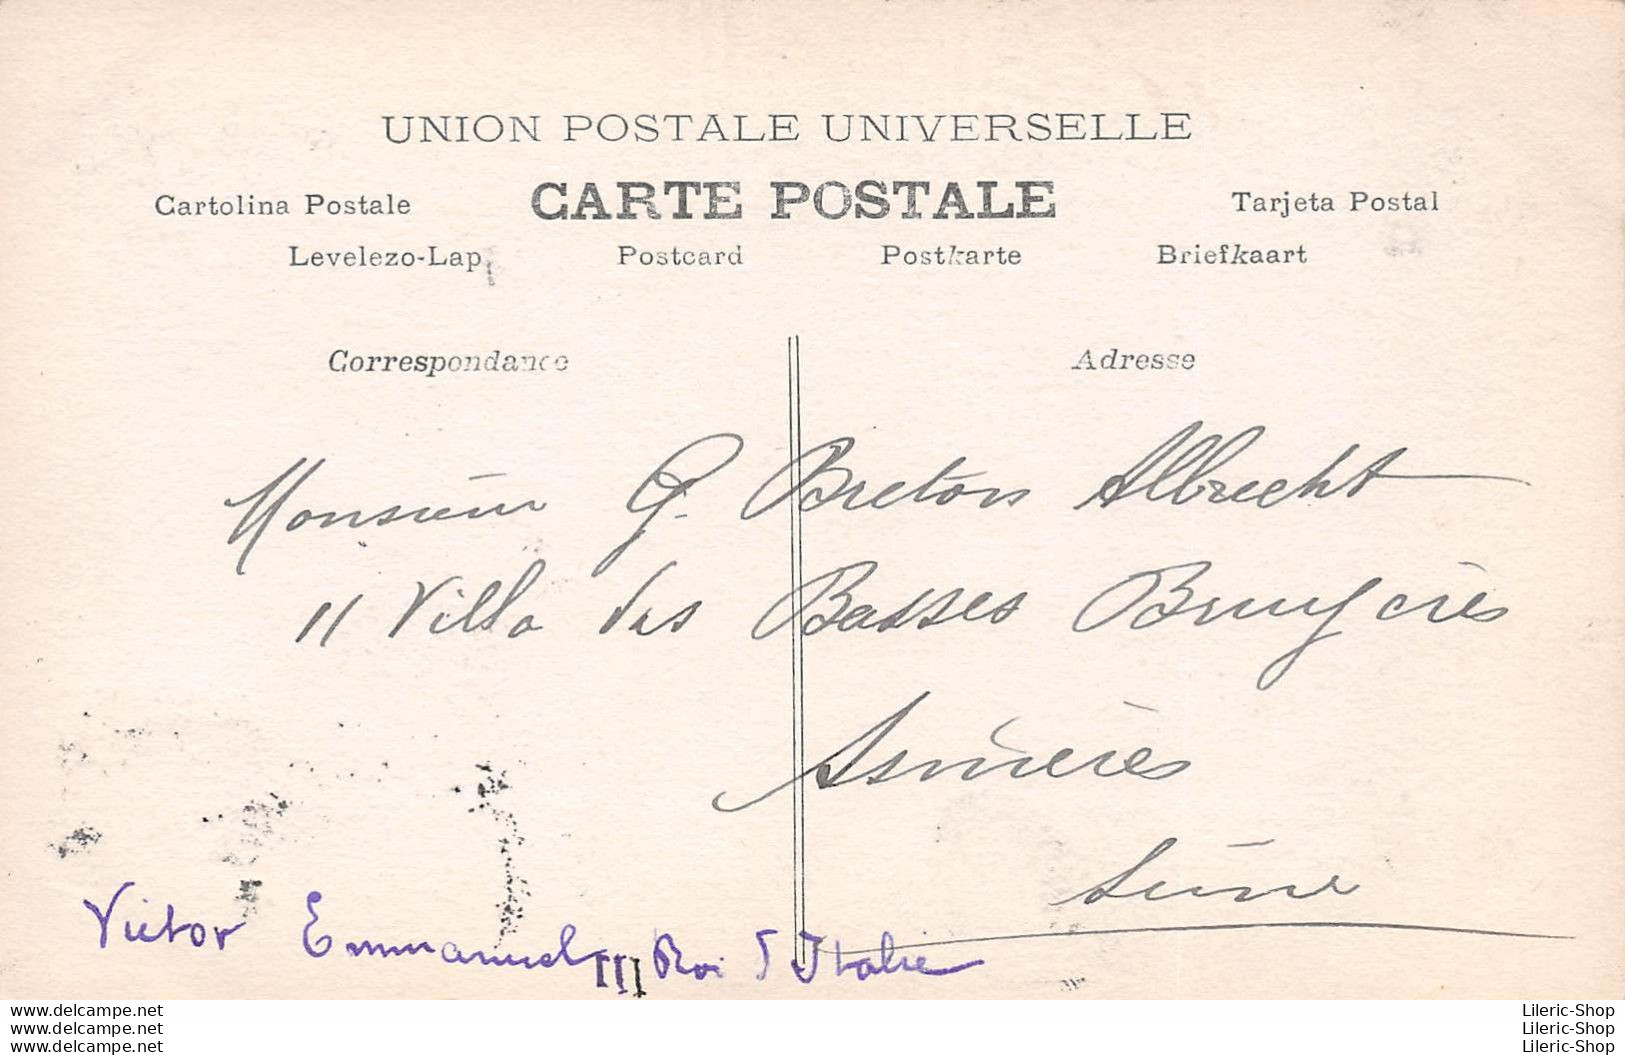 UNION POSTALE UNIVERSELLE
Cartolina Postale CARTE POSTALE Tarjeta Postal
Levelezo-Lap Postcard Postkarte Briefkaart
Correspondance Adresse
Monsieur G. Breton Albrecht
11 Villa des Basses Bruyères
Asnières
Seine
Victor Emmanuel III Roi d'Italie
www.delcampe.net
www.delcampe.net
www.delcampe.net
Lileric-Shop
Lileric-Shop
Lileric-Shop